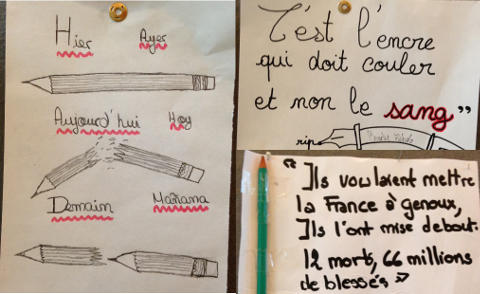 Hier Ayer
Aujourd'hui Hoy
Demain Mañana
C'est l'encre
qui doit couler
et non le sang”
rip
“ Ils voulaient mettre
la France à genoux,
Ils l'ont mise debout.
12 morts, 66 millions
de blessés ”